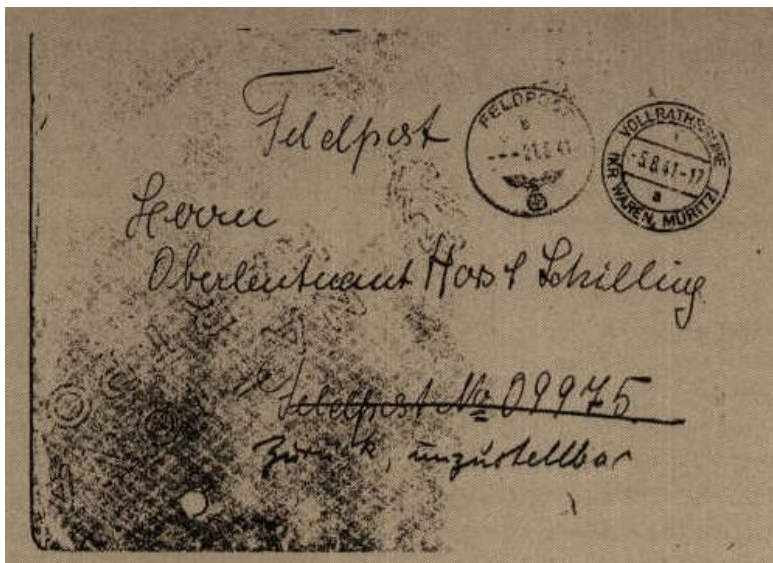 Feldpost
FELDPOST
VOLLRATHSRUHE
-5.8.41-17
a
(KR WAREN, MÜRITZ)
Herrn
Oberleutnant Horst Schilling
Feldpost No 09975
Zurück, unzustellbar